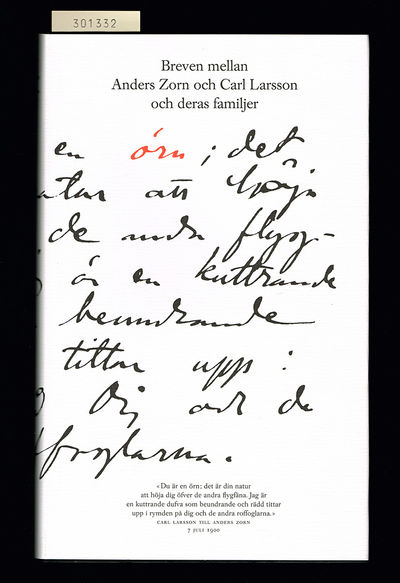 301332
Breven mellan
Anders Zorn och Carl Larsson
och deras familjer
en örn; det
atur att höja
de andra flygf-
är en kuttrande
beundrande
tittar upp i
dig och de
ffoglarna.
«Du är en örn; det är din natur
att höja dig öfver de andra flygfäna. Jag är
en kuttrande dufva som beundrande och rädd tittar
upp i rymden på dig och de andra roffoglarna.»
CARL LARSSON TILL ANDERS ZORN
7 JULI 1900